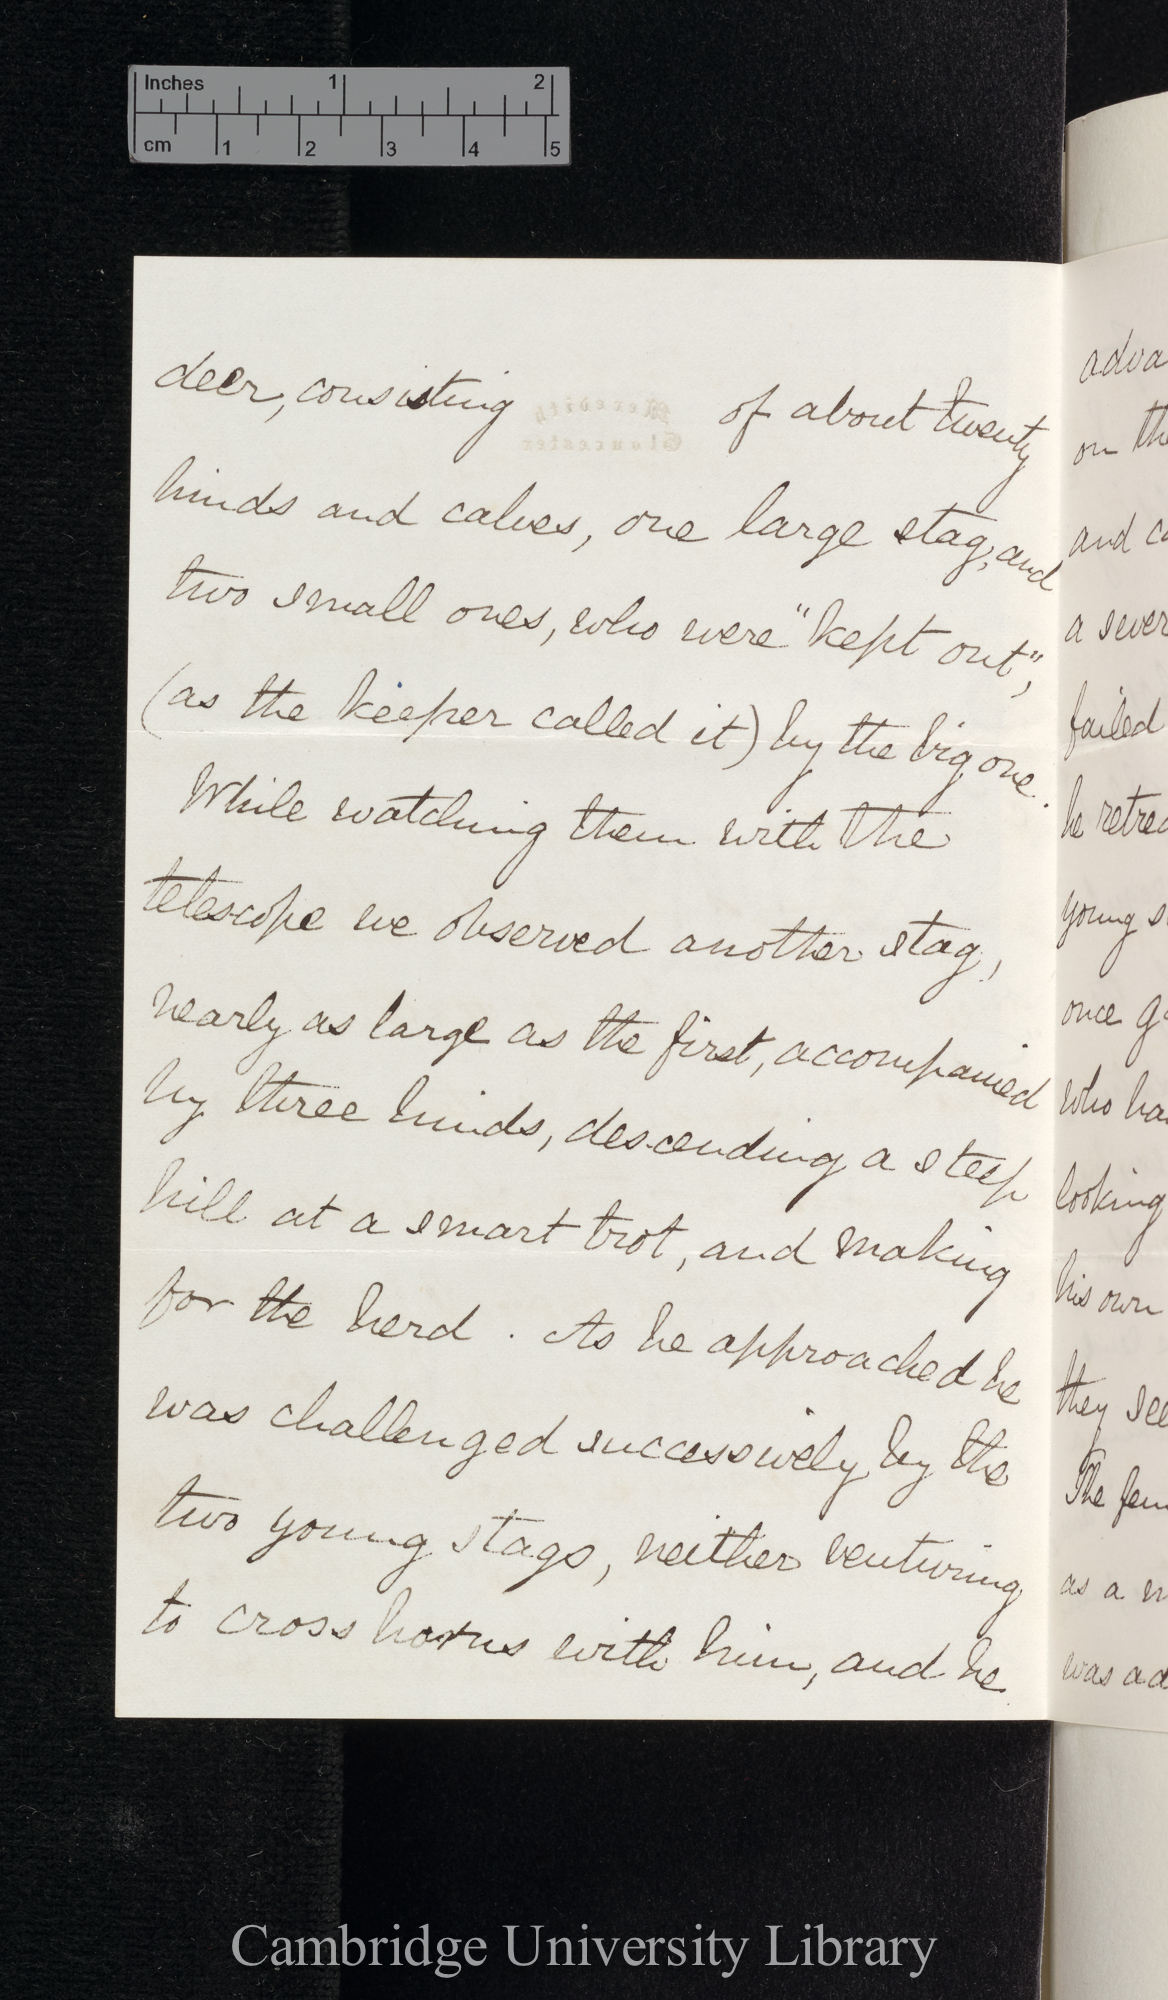 Inches 1 2
cm 1 2 3 4 5
deer, consisting of about twenty
Meredith
Gloucester
hinds and calves, one large stag, and
two small ones, who were "kept out",
(as the keeper called it) by the big one.
While watching them with the
telescope we observed another stag,
nearly as large as the first, accompanied
by three hinds, descending a steep
hill at a smart trot, and making
for the herd. As he approached he
was challenged successively by the
two young stags, neither venturing
to cross horns with him, and he
adva
on the
and co
a sever
failed
he retrea
young s
once g
who ha
looking
his own
they see
The fem
as a m
was ad
Cambridge University Library